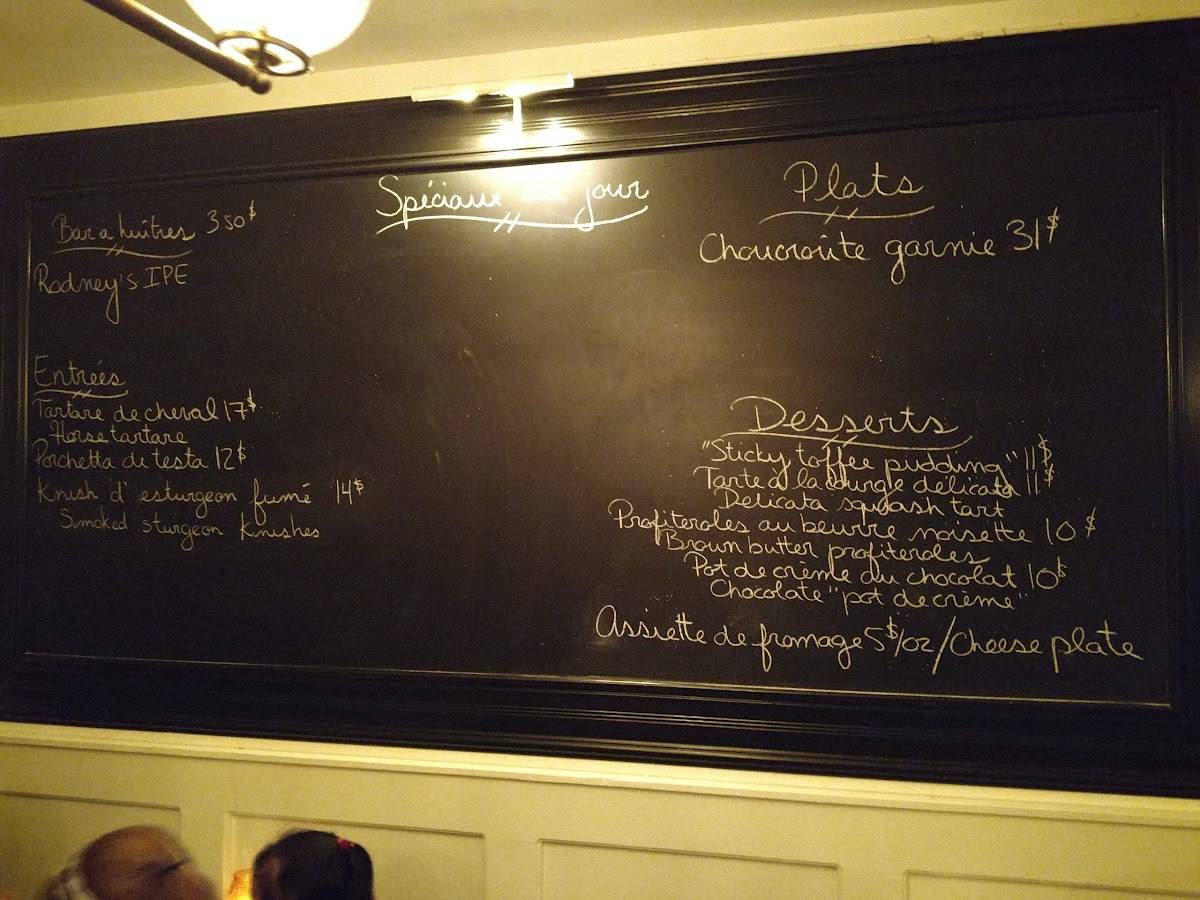 Spéciaux du jour
Bar à huîtres 350$
Rodney's IPE
Entrées
Tartare de cheval 17$
Horse tartare
Porchetta di testa 12$
Knish d'esturgeon fumé 14$
Smoked sturgeon Knishes
Plats
Choucroûte garnie 31$
Desserts
"Sticky toffee pudding" 11$
Tarte à la courge délicata 11$
Delicata squash tart
Profiteroles au beurre noisette 10$
Brown butter profiteroles
Pot de crème au chocolat 10$
Chocolate "pot de crème"
Assiette de fromage 5$/oz/Cheese plate